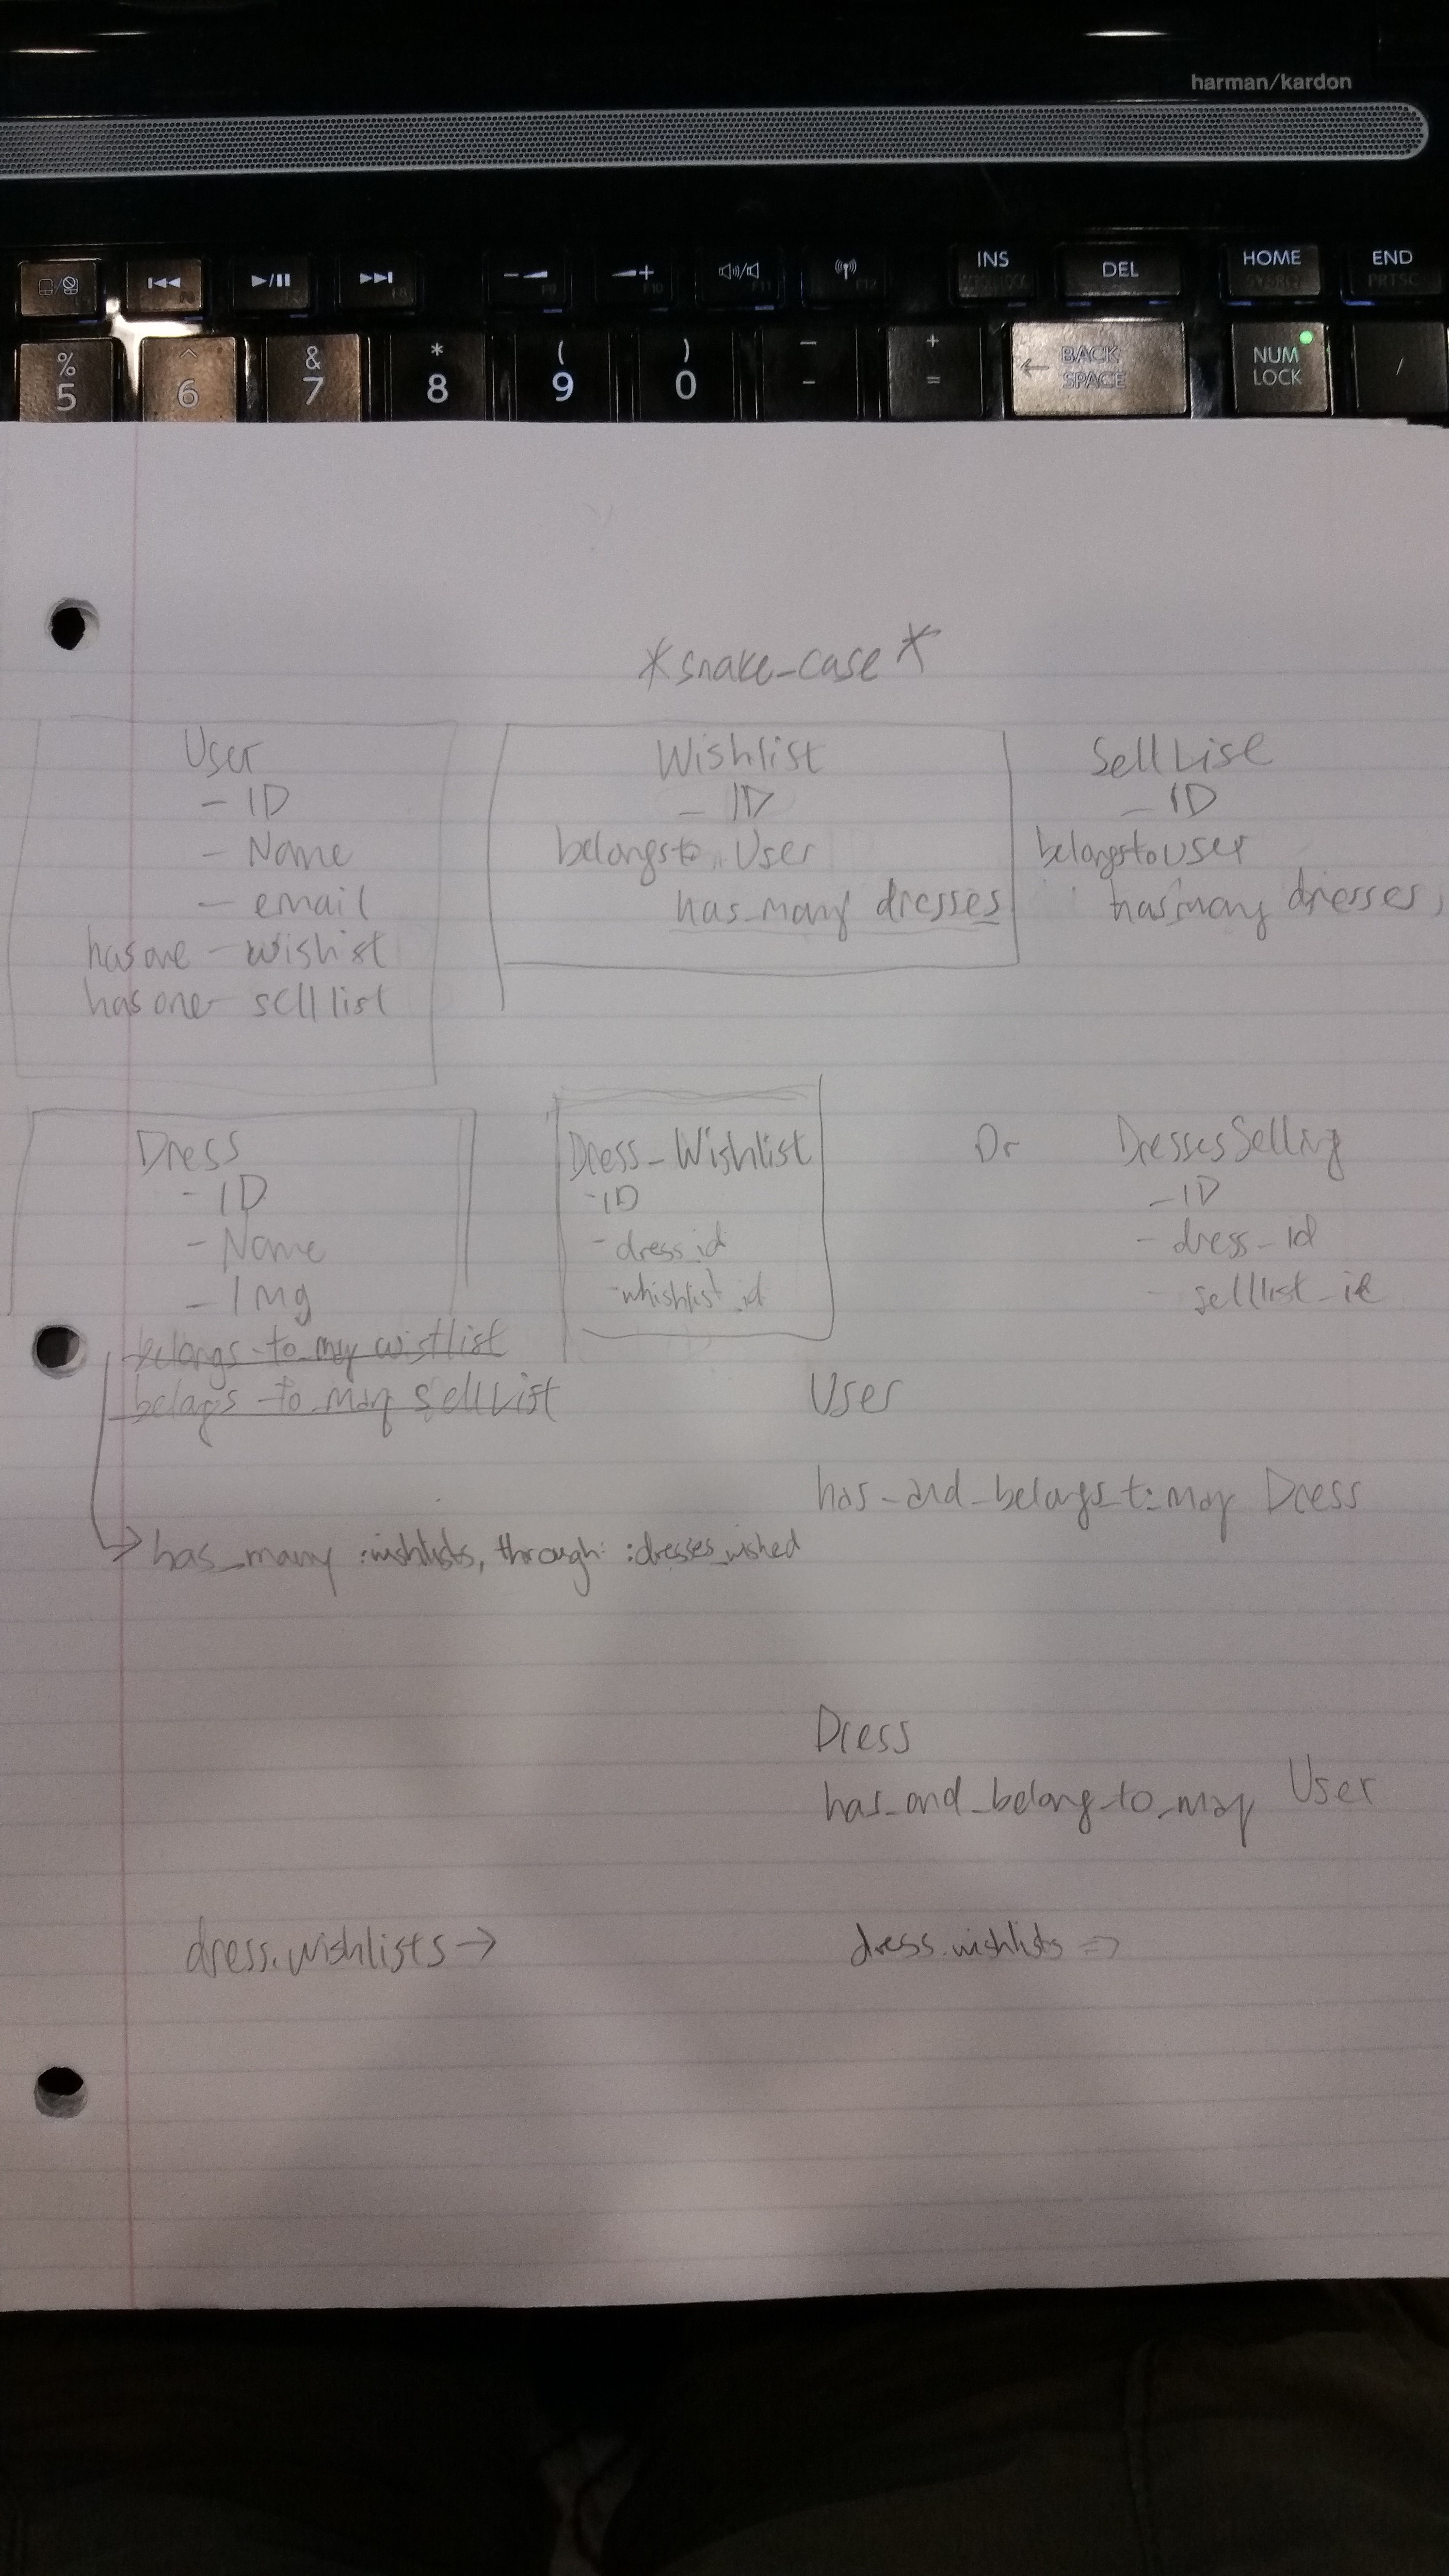 harman/kardon
INS DEL HOME END
PRTSC
F9 F10 F11 F12
% & * ( ) - + BACK SPACE NUM LOCK /
5 ^ 6 7 8 9 0 - =
*snake_case*
User
- ID
- Name
- email
has one - wishist
has one sell list
Wishlist
- ID
belongs to User
has_many dresses
Sell List
- ID
belongs to user
has many dresses,
Dress
- ID
- Name
- Img
belongs-to-may wistlist
belags-to-may SellList
has_many :wishlists, through: :dresses_wished
Dress_Wishlist
- ID
- dress_id
- whishlist_id
Or
DressesSelling
- ID
- dress_id
- selllist_id
User
has_and_belongs_to_may Dress
Dress
has_and_belong_to_may User
dress.wishlists →
dress.wishlists =>